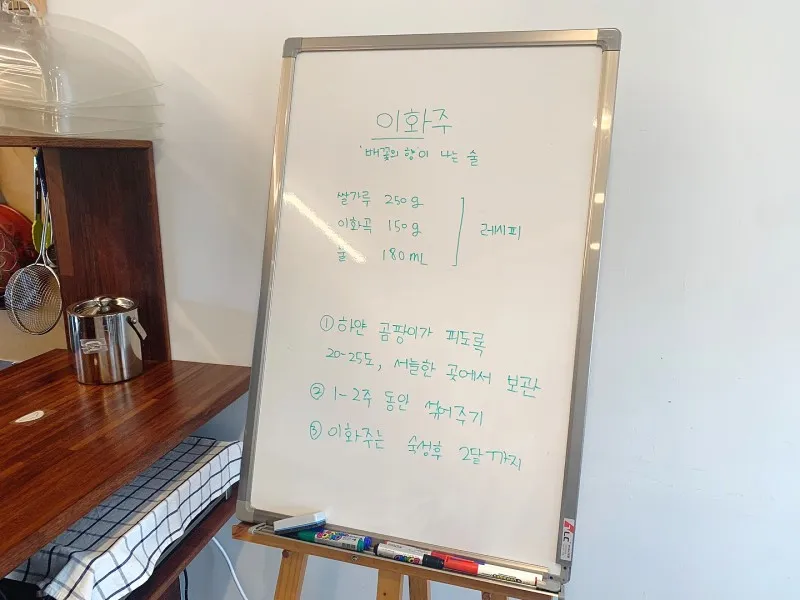 이화주
'배꽃의 향'이 나는 술
쌀가루 250g
이화곡 150g
물 180mL
레시피
① 하얀 곰팡이가 피도록
20-25도, 서늘한 곳에서 보관
② 1-2주 동안 섞어주기
③ 이화주는 숙성후 2달까지
LC